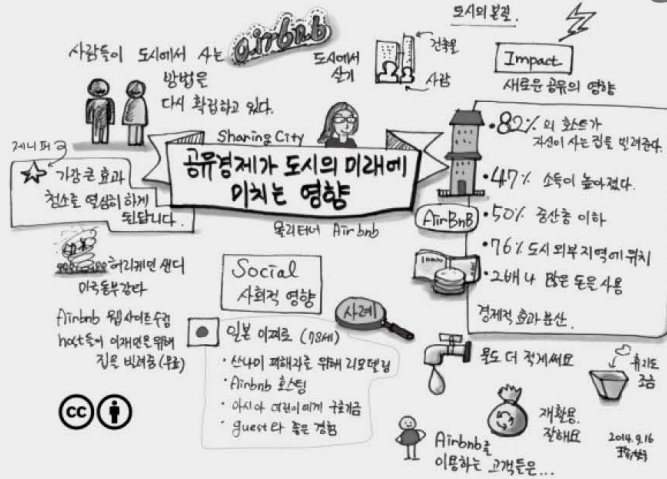 도시의 본질.
사람들이 도시에서 사는
방법은
다시 확립하고 있다.
airbnb
도시에서
살기
건축물
사람
Impact
새로운 공유의 영향
Sharing City
공유경제가 도시의 미래에
미치는 영향
몰리터너 Airbnb
제니퍼
가장 큰 효과
청소를 열심히 하게
된답니다.
• 82% 의 호스트가
자신이 사는 집을 빌려준다.
• 47% 소득이 높아졌다.
AirBnB
• 50% 중산층 이하
• 76% 도시 외부 지역에 위치
• 2배나 많은 돈을 사용
경제적 효과 분산.
허리케인 샌디
미국동부강타
Airbnb 웹사이트수정
host들이 이재민을 위해
집을 빌려줌 (무료)
Social
사회적 영향
사례
일본 이께로 (78세)
• 쓰나미 피해자를 위해 리모델링
• Airbnb 호스팅
• 아시아 어린이에게 구호기금
• guest와 좋은 경험
물도 더 적게써요
휴지도
조금
재활용.
잘해요
Airbnb를
이용하는 고객들은...
cc
2014.9.16